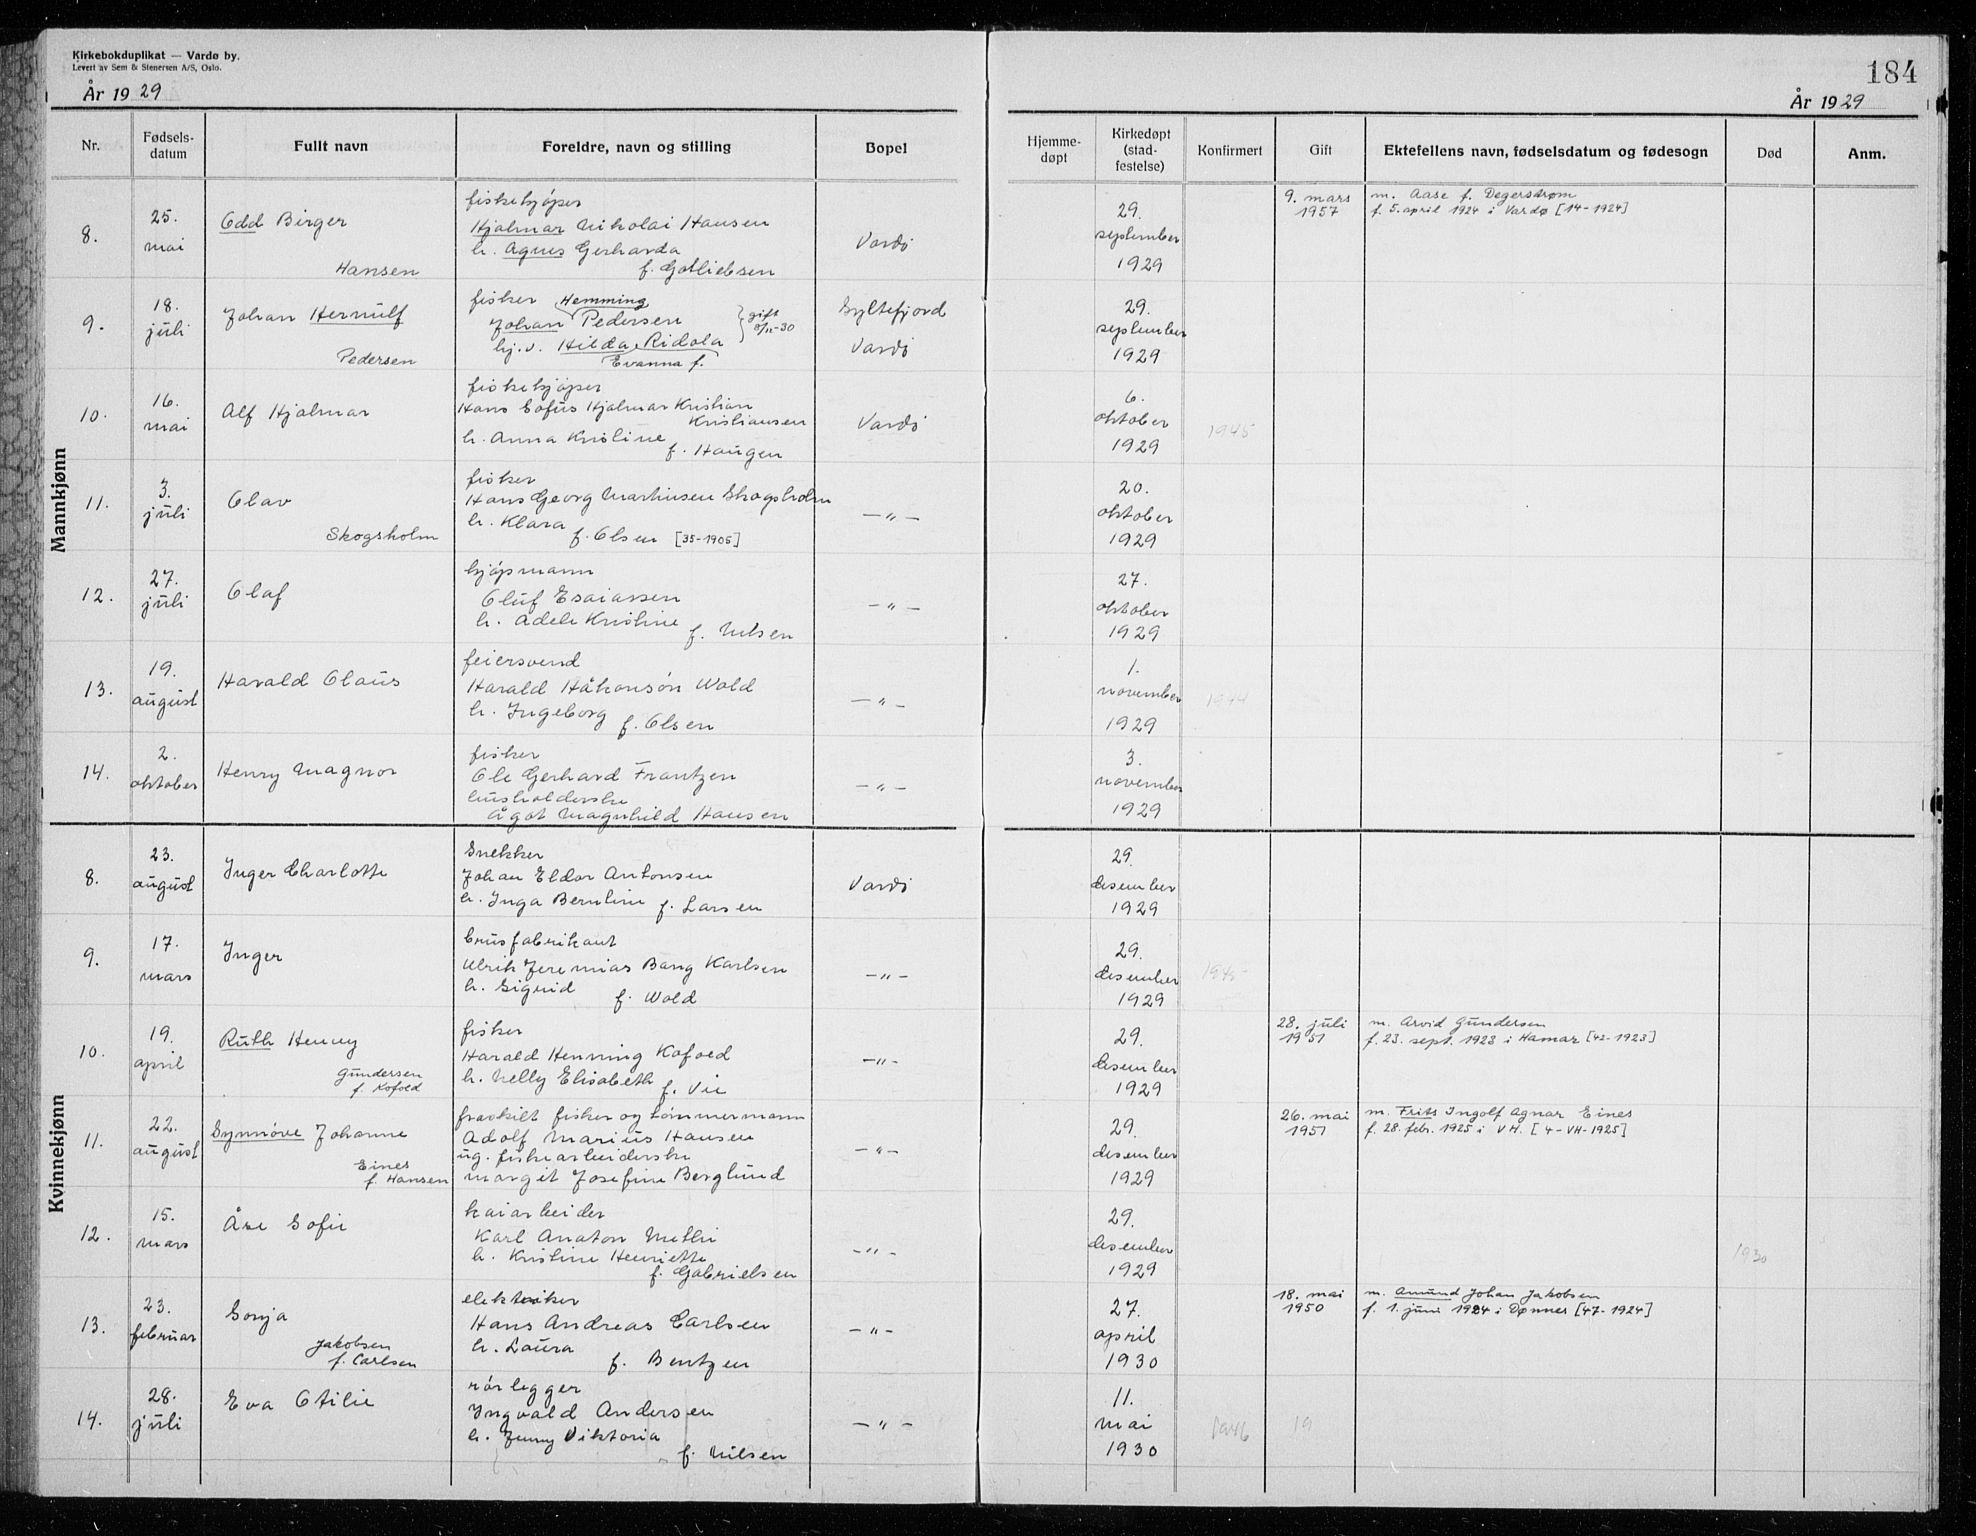 Kirkebokduplikat — Vardø by.
Levert av Sem & Stenersen A/S, Oslo.
År 1929
184
År 1929
Nr. Fødselsdatum Fullt navn Foreldre, navn og stilling Bopel Hjemmedøpt Kirkedøpt (stadfestelse) Konfirmert Gift Ektefellens navn, fødselsdatum og fødesogn Død Anm.
Mannkjønn
8. 25. mai Odd Birger Hansen
fiskekjøper
Hjalmar Nikolai Hansen
h. Agnes Gerharda
f. Gotliebsen
Vardø
29. september 1929
9. mars 1957
m. Aase f. Degerstrøm
f. 5. april 1924 i Vardø [14-1924]
9. 18. juli Johan Hernulf Pedersen
fisker Hemming
Johan Pedersen
hj. v. Hilda Ridola
Evanna f.
gift
Syltefjord
Vardø
29. september 1929
10. 16. mai Alf Hjalmar
fiskekjøper
Hans Sofus Hjalmar Kristian
Kristiansen
h. Anna Kristine
f. Haugen
Vardø
6. oktober 1929
1945
11. 3. juli Olav Skogsholm
fisker
Hans Georg Marhinsen Skogsholm
h. Klara
f. Olsen [35-1905]
—"—
20. oktober 1929
12. 27. juli Olaf
kjøpmann
Oluf Esaiassen
h. Adele Kristine
f. Nilsen
—"—
27. oktober 1929
13. 19. august Harald Olaus
feiersvend
Harald Håkonsøn Wold
h. Ingeborg f. Olsen
—"—
1. november 1929
1944
14. 2. oktober Henry Magnor
fisker
Ole Gerhard Frantzen
husholderske
Ågot Magnhild Hansen
—"—
3. november 1929
Kvinnekjønn
8. 23. august Inger Charlotte
Snekker
Johan Eldor Antonsen
h. Inga Berntine f. Larsen
Vardø
29. desember 1929
9. 17. mars Inger
brusfabrikant
Ulrik Jeremias Bang Karlsen
h. Sigrid
f. Wold
—"—
29. desember 1929
1945
10. 19. april Ruth Henny
Gundersen
f. Kofoed
fisker
Harald Henning Kofoed
h. Nelly Elisabeth
f. Vie
—"—
29. desember 1929
28. juli 1951
m. Arvid Gundersen
f. 23. sept. 1923 i Hamar [42-1923]
11. 22. august Synnøve Johanne
Eines
f. Hansen
fraskilt fisker og tømmermann
Adolf Marius Hansen
ug. fiskearbeiderske
Margit Josefine Berglund
—"—
29. desember 1929
26. mai 1951
m. Frits Ingolf Agnar Eines
f. 28. febr. 1925 i VH. [4-VH-1925]
12. 15. mars Åse Sofie
kaiarbeider
Karl Anaton Methi
h. Kristine Henriette
f. Gabrielsen
—"—
29. desember 1929
1930
13. 23. februar Sonja
Jakobsen
f. Carlsen
elektriker
Hans Andreas Carlsen
h. Laura
f. Bentzen
—"—
27. april 1930
18. mai 1950
m. Amund Johan Jakobsen
f. 1. juni 1924 i Dønnes [47-1924]
14. 28. juli Eva Otilie
rørlegger
Ingvald Andersen
h. Jenny Viktoria
f. Nilsen
—"—
11. mai 1930
1946
19